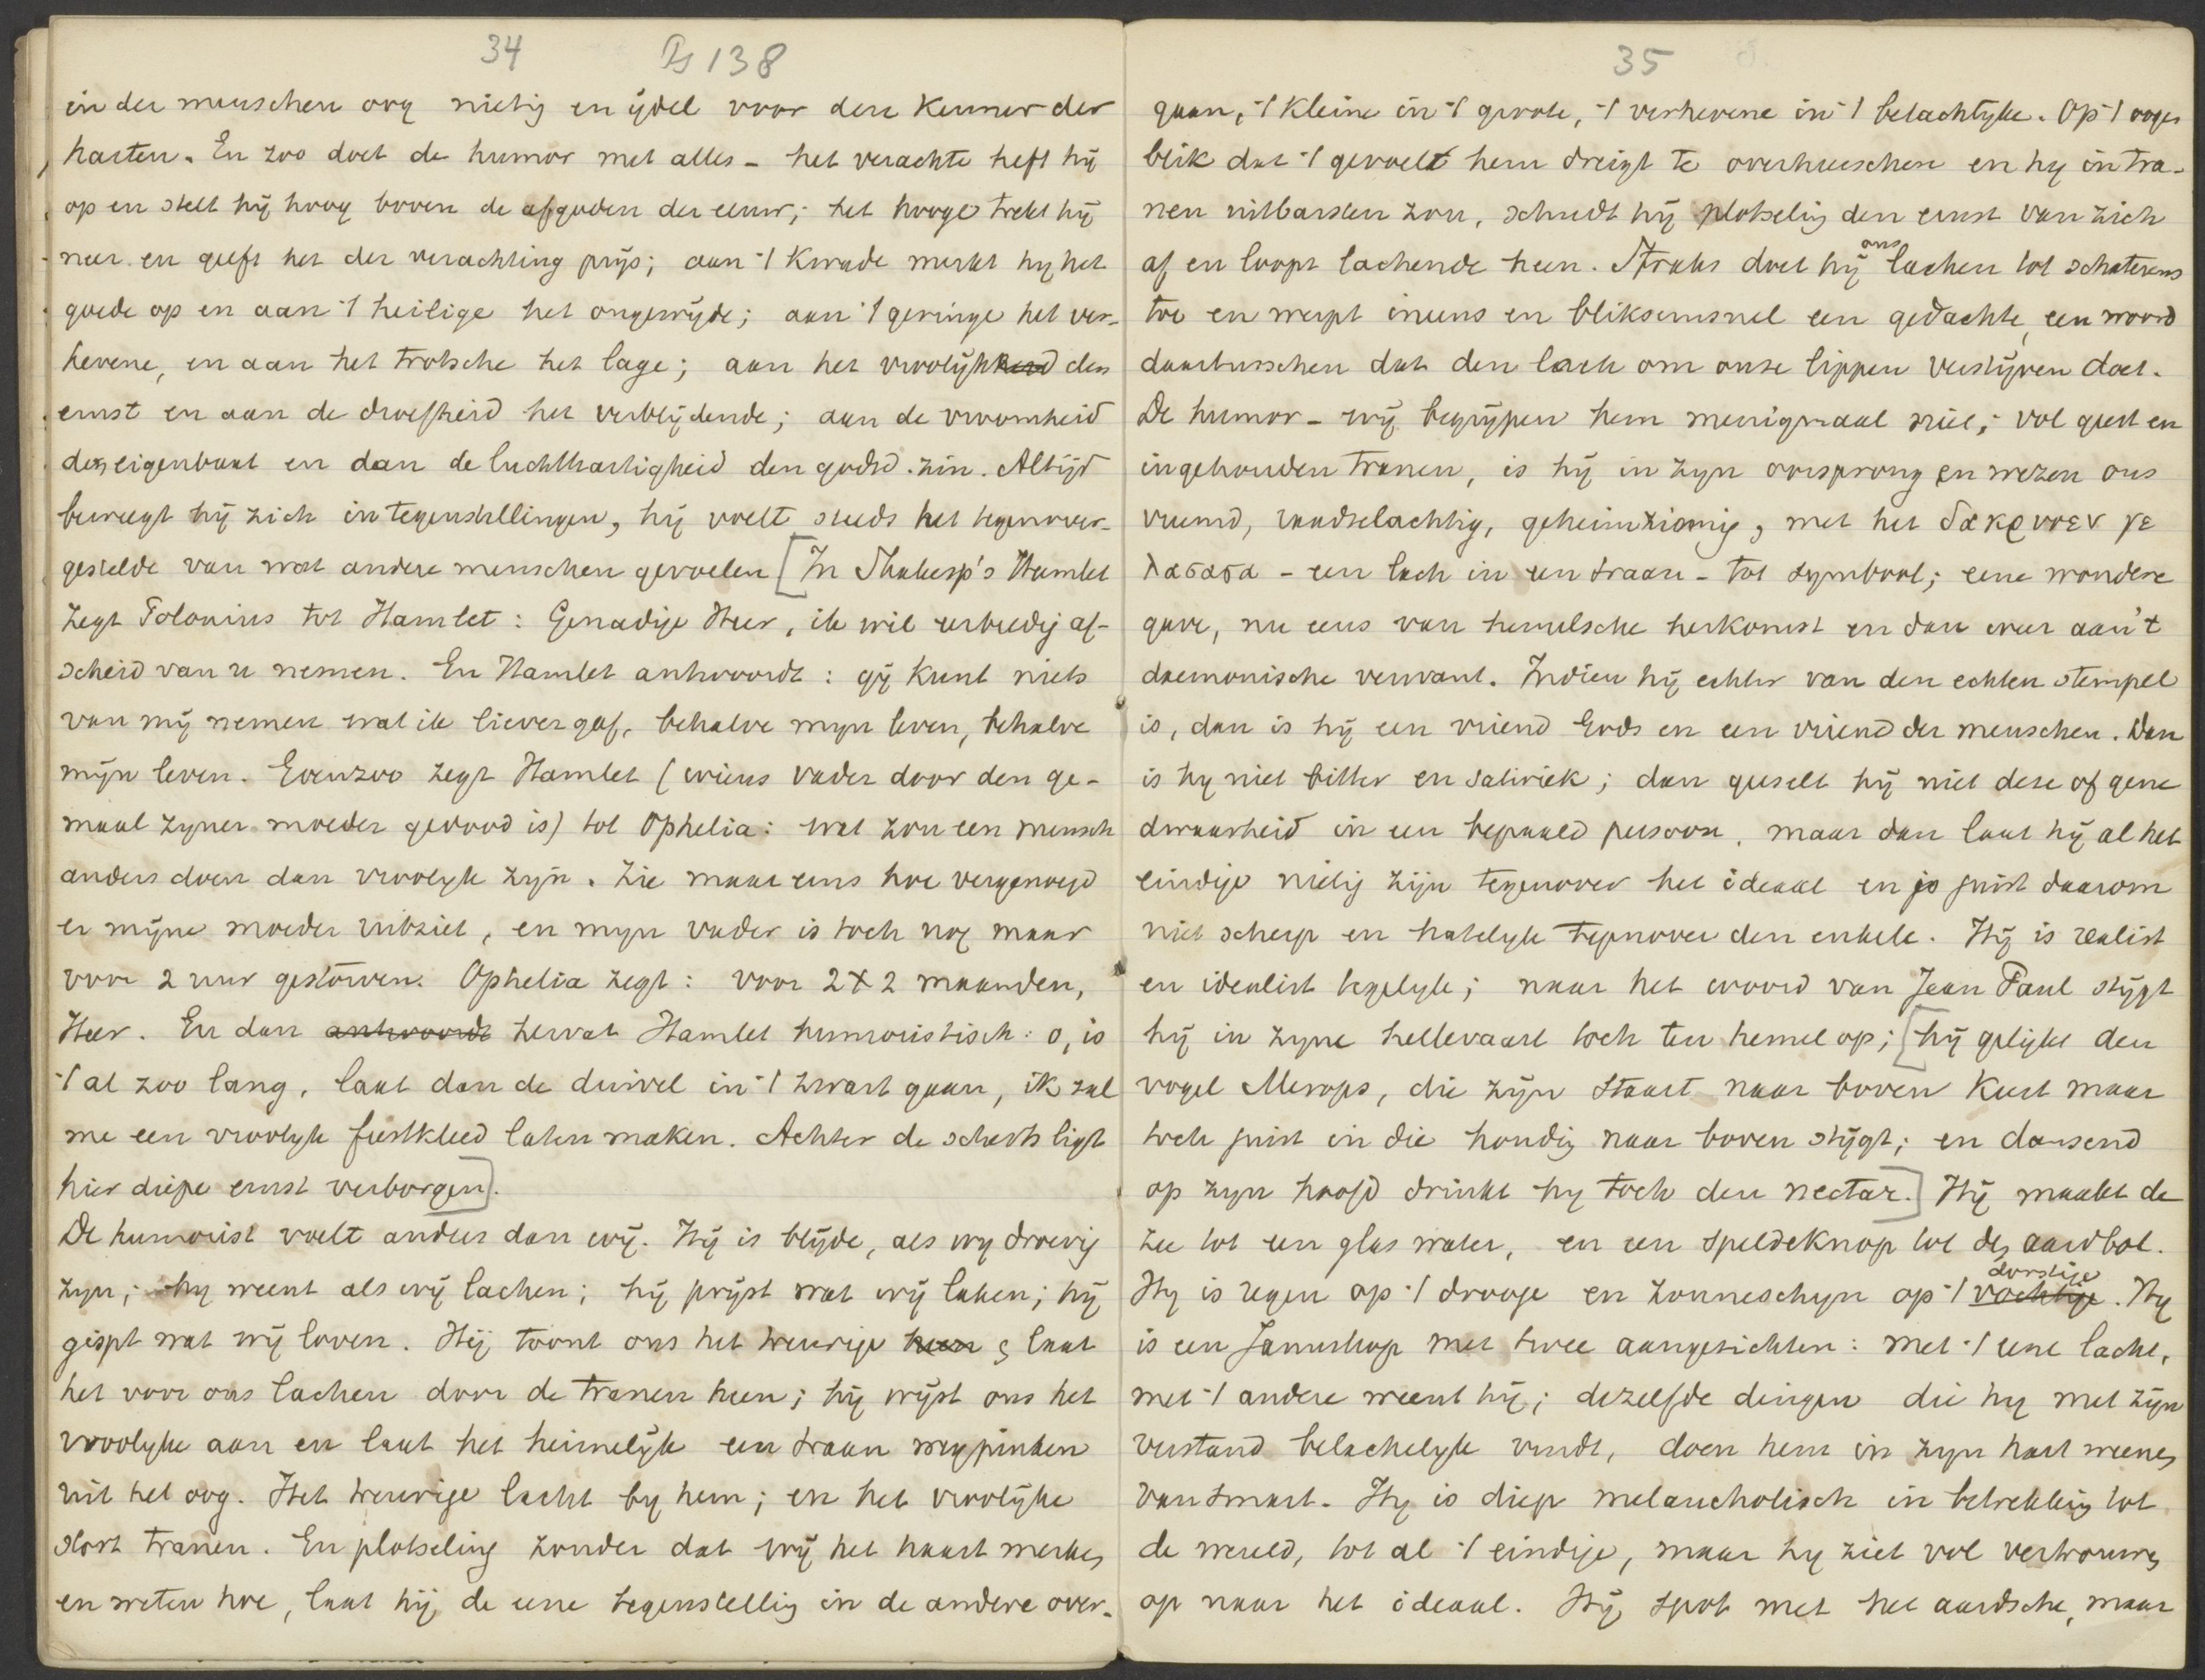 34 Ps 138
in der menschen oog nietig en ijdel voor den Kenner der
harten. En zoo doet de humor met alles - het verachte heft hij
op en stelt hij hoog boven de afgoden der eeuw; het hooge trekt hij
neer en geeft het der verachting prijs; aan 't kwade merkt hij het
goede op en aan 't heilige het ongewijde; aan 't geringe het ver-
hevene, en aan het trotsche het lage; aan het vroolijkheid den
ernst en aan de droefheid het verblijdende; aan de vroomheid
den eigenbaat en dan de luchthartigheid den godsd. zin. Altijd
beweegt hij zich in tegenstellingen, hij voelt steeds het tegenover-
gestelde van wat andere menschen gevoelen [In Shakesp's Hamlet
zegt Polonius tot Hamlet: Genadige Heer, ik wil eerbiedig af-
scheid van u nemen. En Hamlet antwoordt: gij kunt niets
van mij nemen wat ik liever gaf, behalve mijn leven, behalve
mijn leven. Evenzoo zegt Hamlet (wiens vader door den ge-
maal zijner moeder gedood is) tot Ophelia: wat zou een mensch
anders doen dan vroolijk zijn. Zie maar eens hoe vergenoegd
er mijne moeder uitziet, en mijn vader is toch nog maar
voor 2 uur gestorven. Ophelia zegt: voor 2 x 2 maanden,
Heer. En dan antwoordt hervat Hamlet humoristisch: o, is
't al zoo lang, laat dan de duivel in 't zwart gaan, ik zal
me een vroolijk feestkleed laten maken. Achter de scherts ligt
hier diepe ernst verborgen].
De humorist voelt anders dan wij. Hij is blijde, als wij droevig
zijn; hij weent als wij lachen; hij prijst wat wij laken; hij
gispt wat wij loven. Hij toont ons het treurige heen & laat
het voor ons lachen door de tranen heen; hij wijst ons het
vroolijke aan en laat het heimelijk een traan wegpinken
uit het oog. Het treurige lacht bij hem; en het vroolijke
stort tranen. En plotseling zonder dat wij het haast merken
en weten hoe, laat hij de eene tegenstelling in de andere over-
35
gaan, 't kleine in 't groote, 't verhevene in 't belachlijke. Op 't oogen
blik dat 't gevoel hem dreigt te overheerschen en hij in tra-
nen uitbarsten zou, schudt hij plotseling den ernst van zich
af en loopt lachende heen. Straks doet hij ons lachen tot schaterens
toe en werpt ineens en bliksemsnel een gedachte, een woord
daartusschen dat den lach om onze lippen verstijven doet.
De humor - wij begrijpen hem menigmaal niet; vol geest en
ingehouden tranen, is hij in zijn oorsprong en wezen ons
vreemd, raadselachtig, geheimzinnig, met het δακρυοεν γε
λασασα - een lach in een traan - tot symbool; eene wondere
gave, nu eens van hemelsche herkomst en dan weer aan 't
daemonische verwant. Indien hij echter van den echten stempel
is, dan is hij een vriend Gods en een vriend der menschen. Dan
is hij niet bitter en satiriek; dan geeselt hij niet deze of gene
dwaasheid in een bepaald persoon, maar dan laat hij al het
eindige nietig zijn tegenover het ideaal en is juist daarom
niet scherp en hatelijk tegenover den enkele. Hij is realist
en idealist tegelijk; naar het woord van Jean Paul stijgt
hij in zijne hellevaart toch ten hemel op; [hij gelijkt den
vogel Merops, die zijn staart naar boven keert maar
toch juist in die houding naar boven stijgt; en dansend
op zijn hoofd drinkt hij toch den nectar.] Hij maakt de
zee tot een glas water, en een speldeknop tot den aardbol.
Hij is regen op 't drooge en zonneschijn op 't vochtige dorstige. Hij
is een Januskop met twee aangezichten: met 't eene lacht,
met 't andere weent hij; dezelfde dingen die hij met zijn
verstand belachelijk vindt, doen hem in zijn hart weenen
van smart. Hij is diep melancholisch in betrekking tot
de wereld, tot al 't eindige, maar hij ziet vol vertrouwen
op naar het ideaal. Hij spot met het aardsche, maar